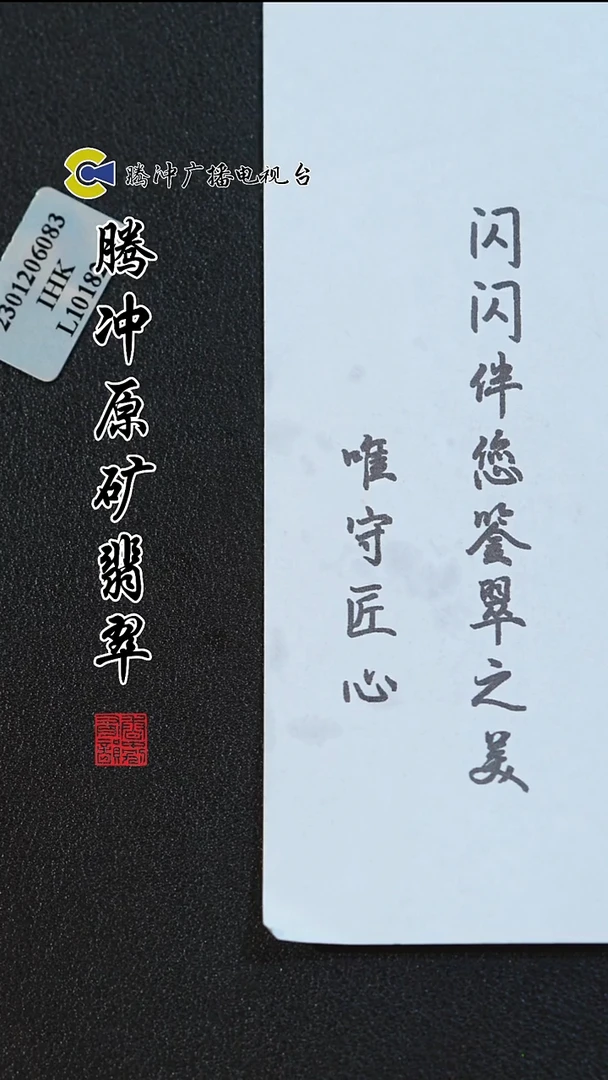 腾冲广播电视台
腾冲原矿翡翠
2301206083
IHK
闪闪伴您鉴翠之美
唯守匠心